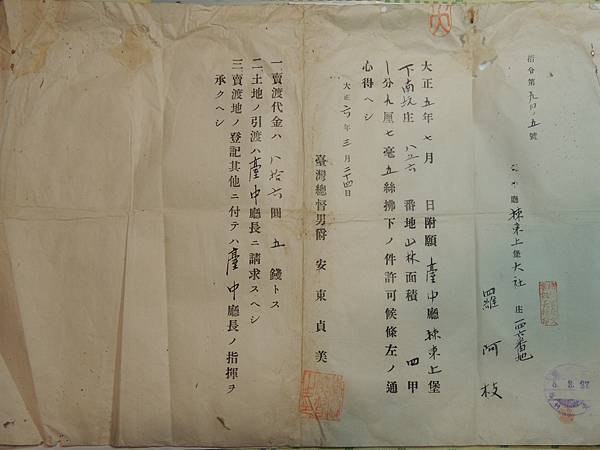 指令第九四ノ五號
臺中廳 揀東上堡大社 庄 四六番地
羅 阿 枝
大正 五 年 七 月 日附願 臺中廳 揀東上堡
下南坑庄 八三六 番地 山林 面積 四 甲
一分九厘七毫五絲拂下ノ件許可候條左ノ通
心得ヘシ
大正 六 年 三 月 二十四日
臺灣總督男爵 安東貞美
一 賣渡代金ハ 八拾六圓 五 錢トス
二 土地ノ引渡ハ 臺中廳長ニ請求スヘシ
三 賣渡地ノ登記其他ニ付テハ 臺中廳長ノ指揮ヲ
承クヘシ
6.3.27